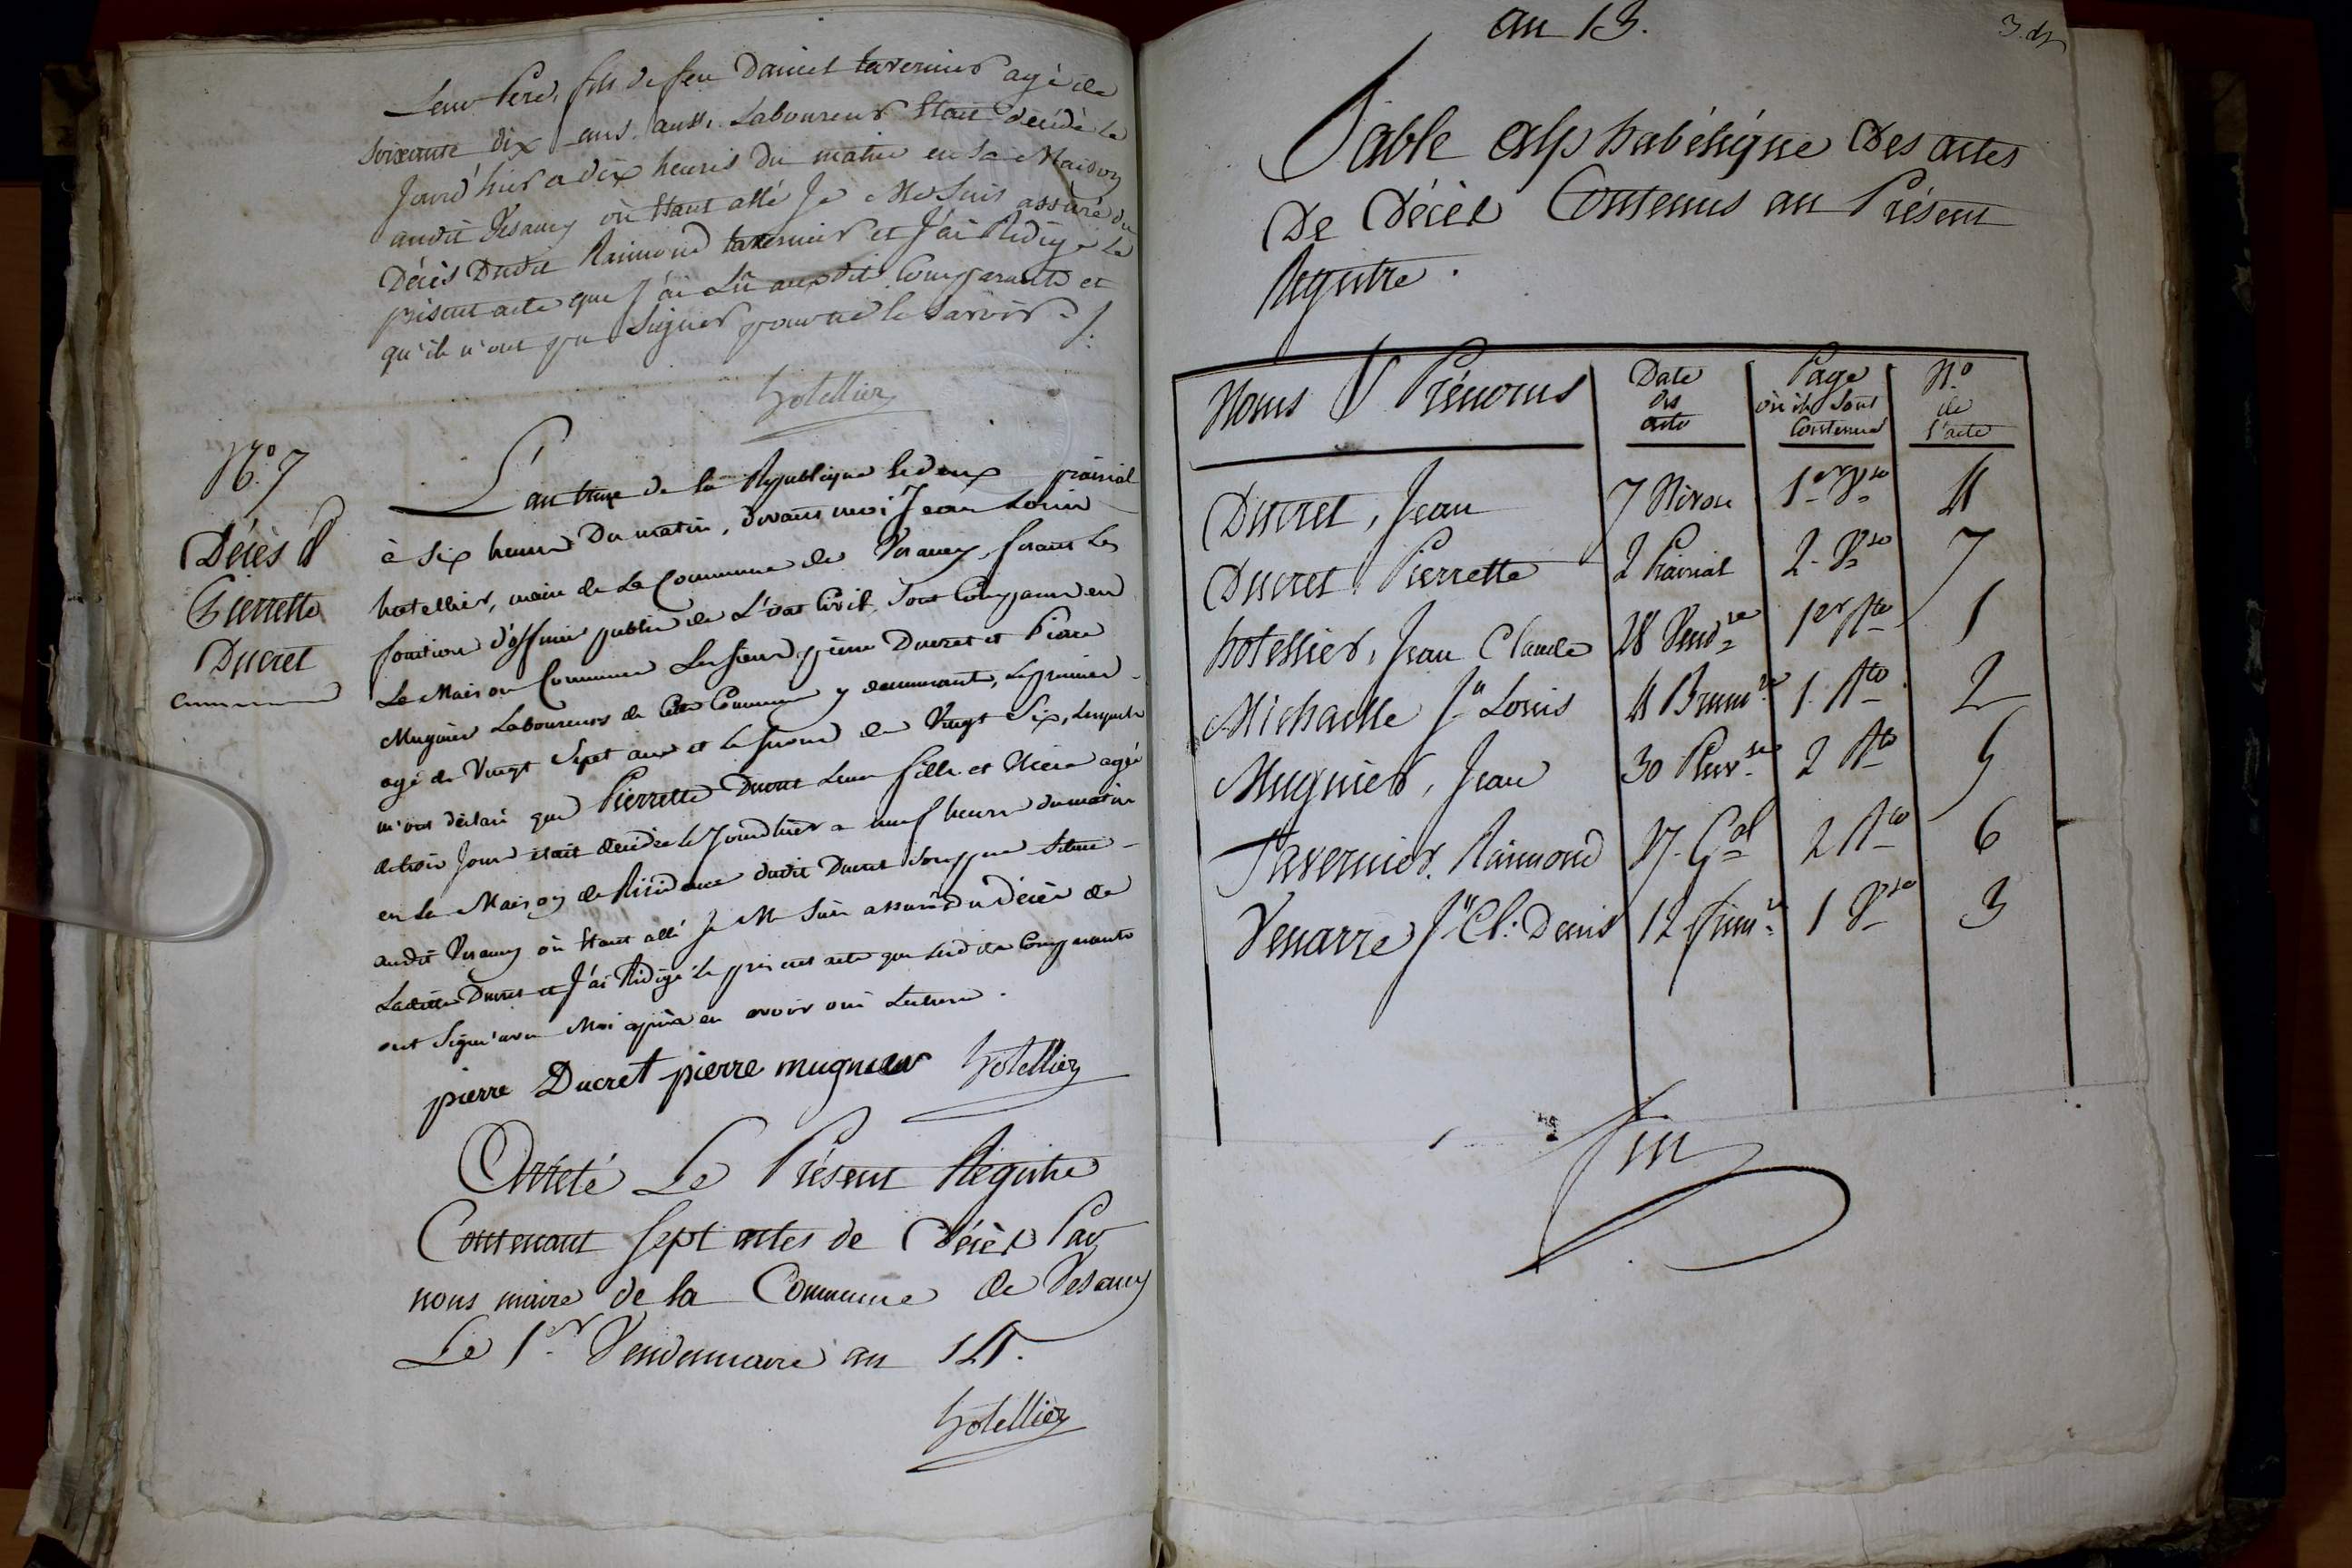 Leur Père, fils de feu Daniel tavernier agé de
soixante dix ans aussi Laboureur Etait décédé Le
Jourd'hier a dix heures du matin en sa Maison
audit Vesancy où Etant allé Je Me suis assuré du
Décès Dudit Raimond tavernier et J'ai Rédigé Le
présent acte que J'ai Lû auxdits Comparants et
qu'ils n'ont pu Signer pour ne le savoir ./.
hotellier
N.º 7
Décès d
Pierrette
Ducret
L'an treize de la République le deux prairial
à six heures Du matin, devant moi Jean Louis
hotellier, maire de La Commune de Vesancy, faisant les
fonctions d'officier public de L'état Civil, sont Comparus en
La Maison Commune Les sieurs pierre Ducret et Pierre
Mugnier Laboureurs de Cette Commune y demeurants, le premier
agé de Vingt Sept ans et le second de Vingt Six, Lesquels
m'ont déclaré que Pierrette Ducret Leur fille et Nièce agée
de trois Jours était décédée le Jourdhier a neuf heures du matin
en la Maison de Résidence dudit Ducret son père située
audit Vesancy où Etant allé Je Me suis assuré du Décès de
Ladite Ducret et J'ai Rédigé le présent acte que Lesdits Comparants
ont Signé avec Moi après en avoir oui Lecture.
pierre Ducret pierre mugnier hotellier
Arrêté Le Présent Registre
Contenant sept actes de Décès Par
nous maire de la Commune de Vesancy
Le 1.er Vendemiaire an 14.
hotellier
an 13.
Table alphabétique Des actes
De Décès Contenus au Présent
Registre.
Noms & Prénoms | Date des actes | Page où ils sont Contenus | N.º de l'acte
Ducret, Jean 7 Nivose 1er Vso 4
Ducret Pierrette 2 Prairial 2 Vso 7
hotellier, Jean Claude 28 Vendre 1er Rto 1
Michaille Jn Louis 4 Brumre 1 Rto 2
Mugnier, Jean 30 Pluvse 2 Rto 5
Tavernier, Raimond 27 Gal 2 Rto 6
Venarre Jn Cl: Denis 12 frimre 1 Vso 3
fin